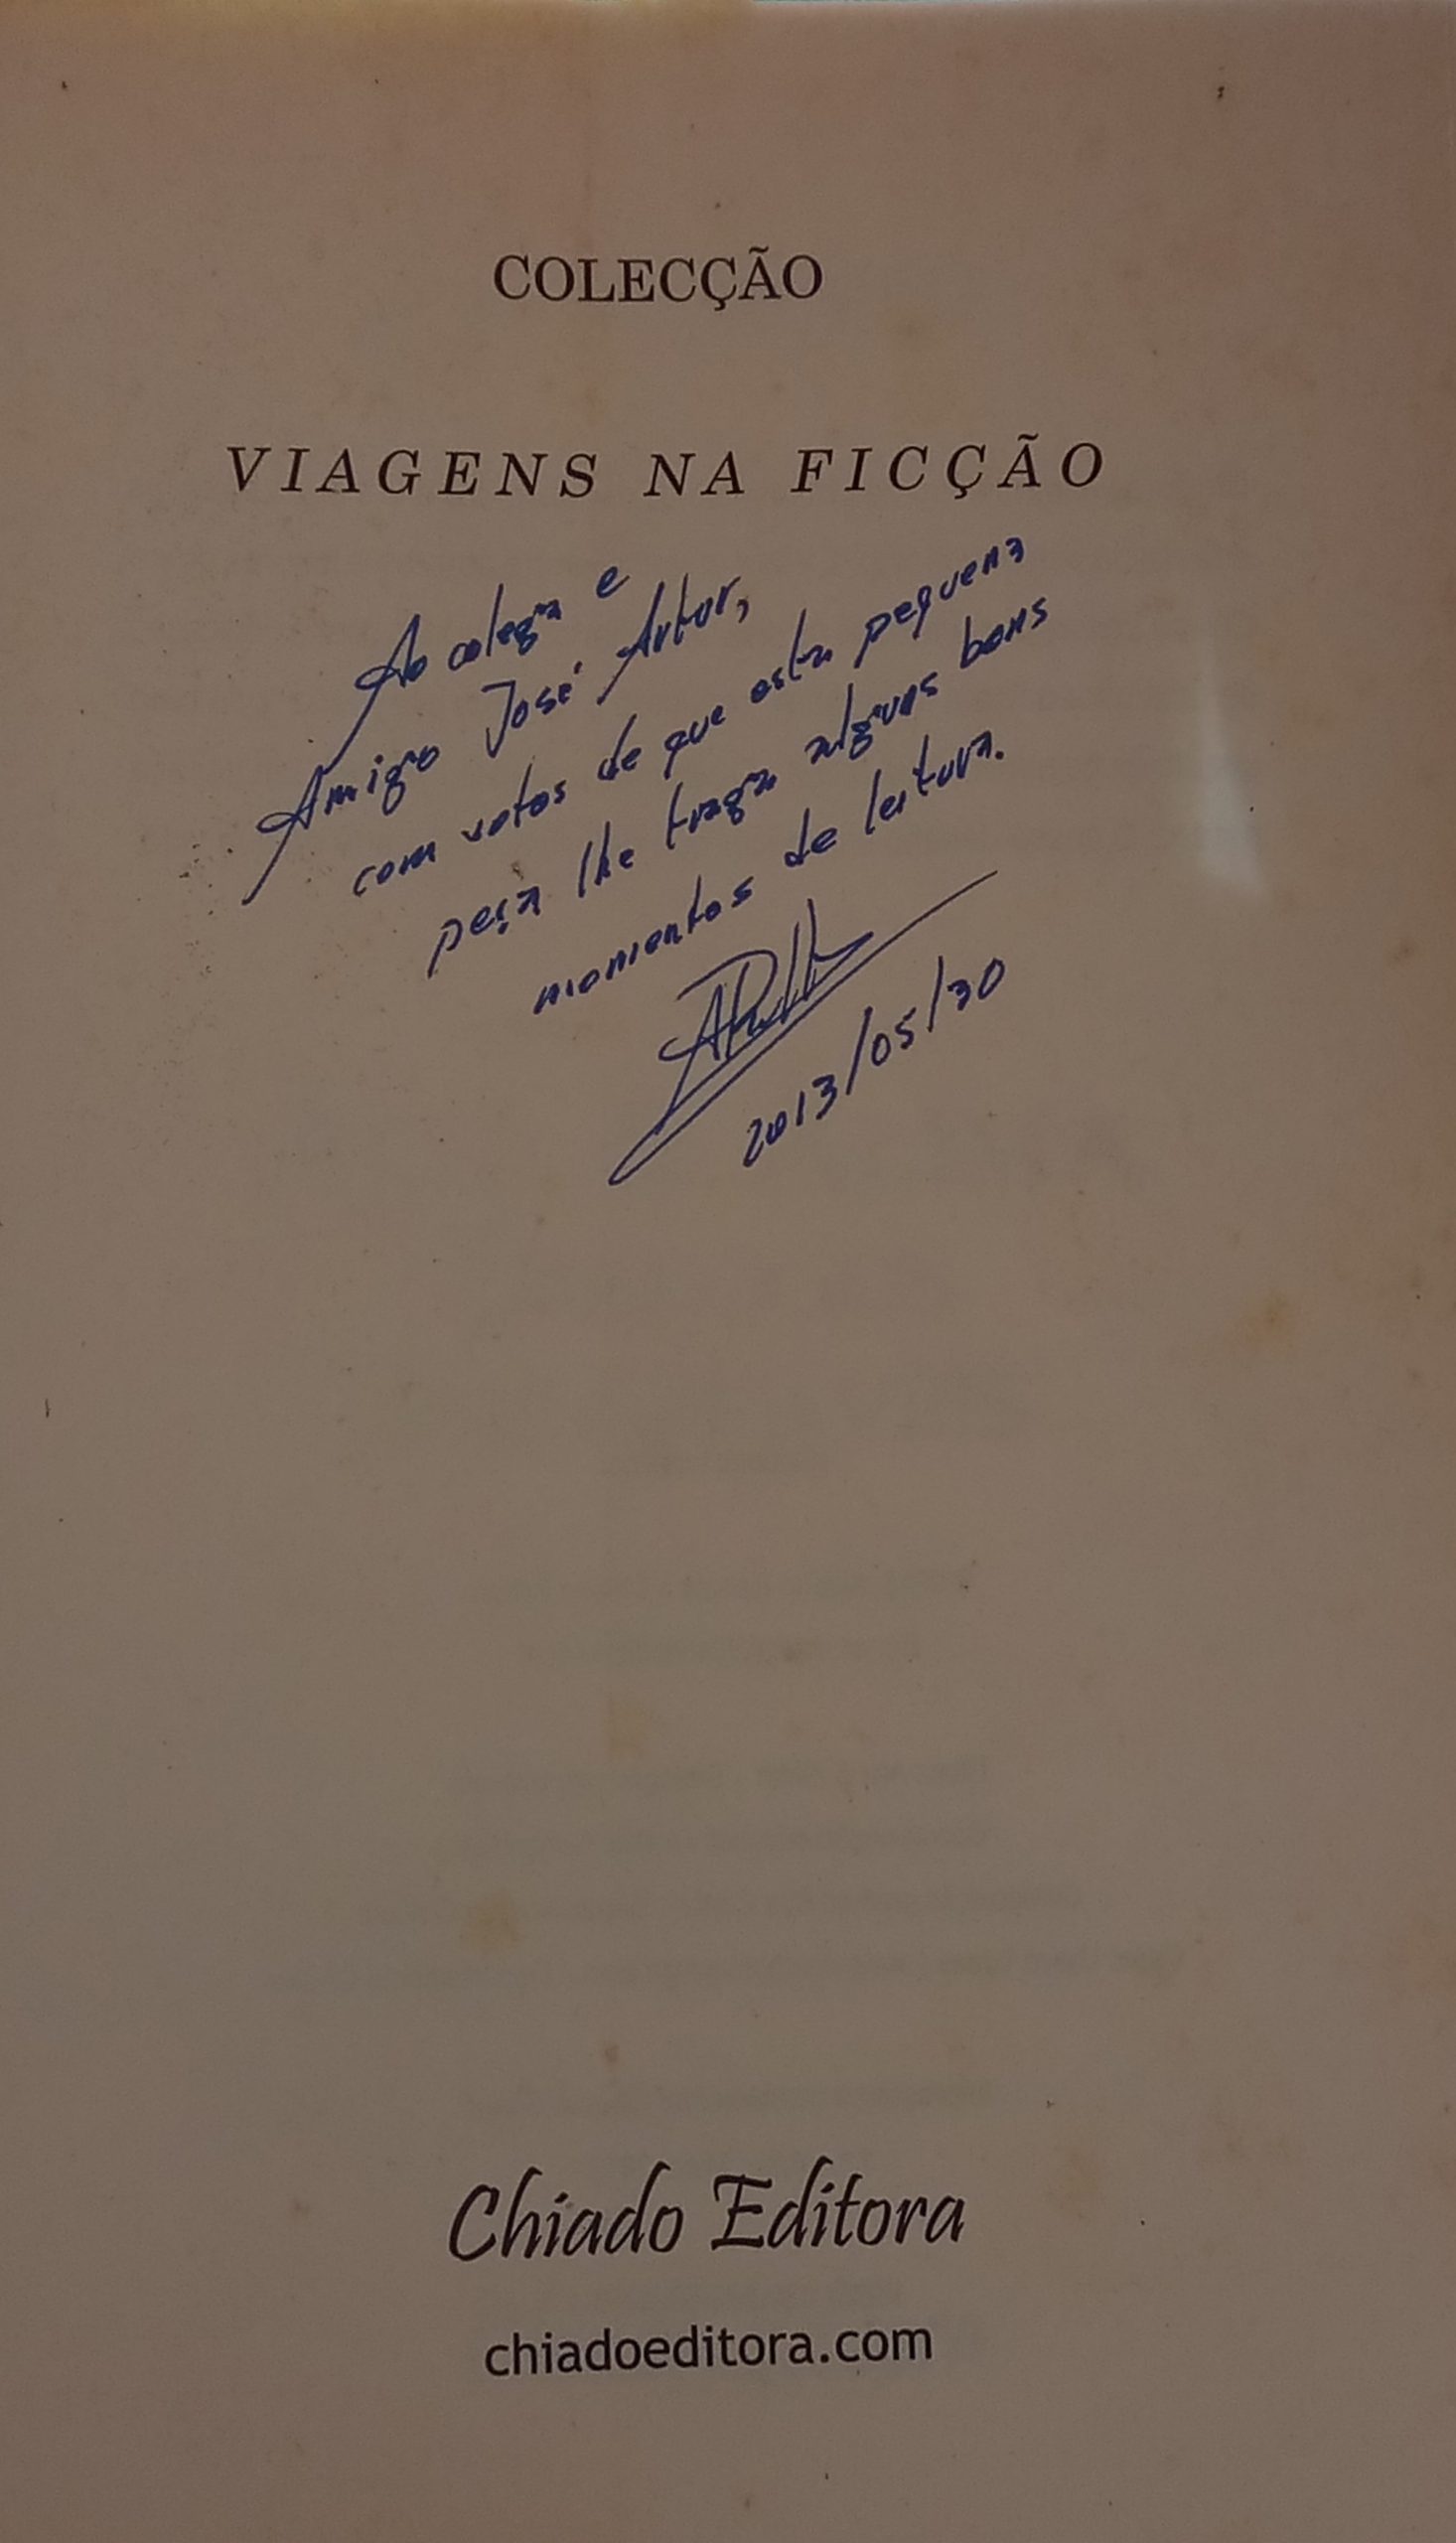 COLECÇÃO
VIAGENS NA FICÇÃO
Ao colega e
Amigo José Artur,
com votos de que esta pequena
peça lhe traga alguns bons
momentos de leitura.
2013/05/30
Chiado Editora
chiadoeditora.com